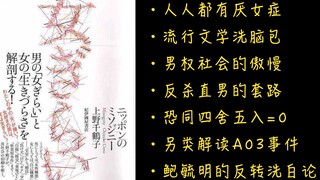 男の「女ぎらい」と
女の「生きづらさ」を
解剖する!
ニッポンの
ミソジニー
上野千鶴子
紀伊國屋書店
· 人人都有厌女症
· 流行文学洗脑包
· 男权社会的傲慢
· 反杀直男的套路
· 恐同四舍五入=0
· 另类解读AO3事件
· 鲍毓明的反转洗白论